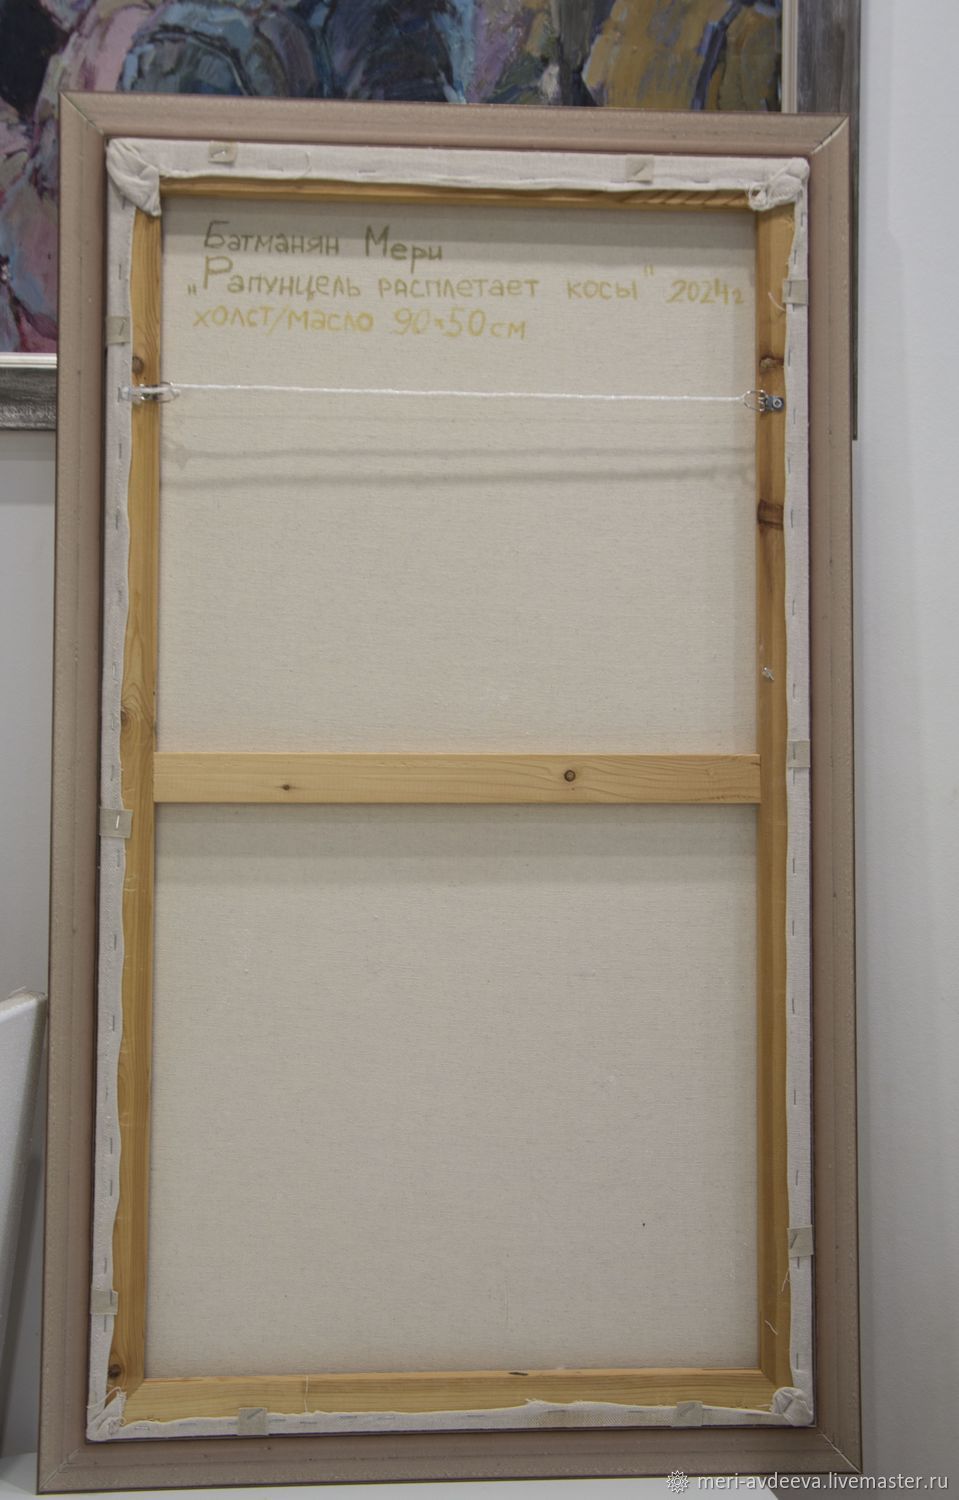 Батманян Мери
„Рапунцель расплетает косы" 2024г
холст/масло 90×50см
meri-avdeeva.livemaster.ru